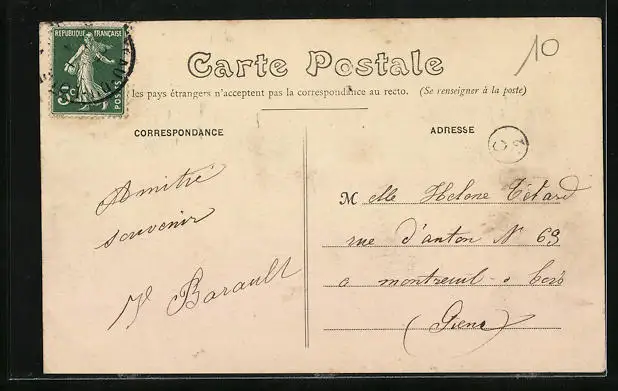 RÉPUBLIQUE FRANÇAISE
5c
POSTES
10
Carte Postale
les pays étrangers n'acceptent pas la correspondance au recto. (Se renseigner à la poste)
CORRESPONDANCE
ADRESSE
Amitié
souvenir
Barault
M elle Helene Tétard
rue d'anton N° 69
a montreuil